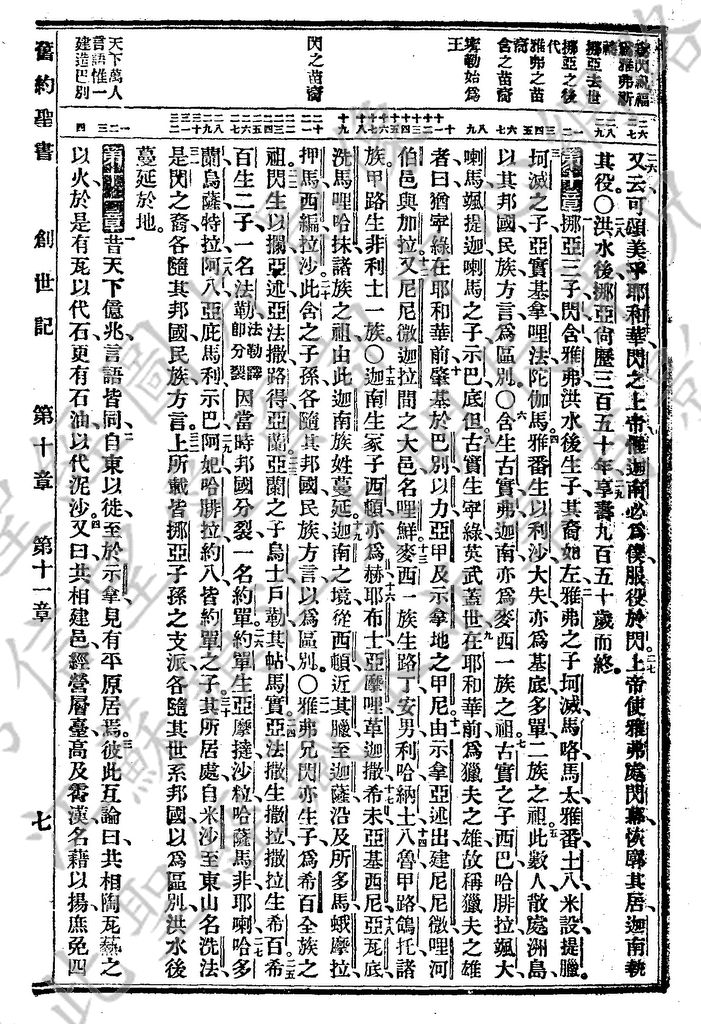 又云可頌美乎耶和華閃之上帝惟迦南必爲僕服役於閃上帝使雅弗處閃幕恢廓其居迦南執
其役〇洪水後挪亞尙歷三百五十年享壽九百五十歲而終
第十章挪亞三子閃含雅弗洪水後生子其裔如左雅弗之子坷滅馬咯馬太雅番土八米設提臘
坷滅之子亞實基拿哩法陀伽馬雅番生以利沙大失亦爲基底多單二族之祖此數人散處洲島
以其邦國民族方言爲區別〇含生古實弗迦南亦爲麥西一族之祖古實之子西巴哈腓拉颯大
喇馬颯提迦喇馬之子示巴底但古實生寧綠英武蓋世在耶和華前爲獵夫之雄故稱獵夫之雄
者曰猶寧綠在耶和華前肇基於巴別以力亞甲及示拿地之甲尼由示拿亞述出建尼尼微哩河
伯邑與加拉又尼尼微迦拉間之大邑名哩鮮麥西一族生路丁安男利哈納士八魯甲路鴿托諸
族甲路生非利士一族〇迦南生冢子西頓亦爲赫耶布士亞摩哩革迦撒希未亞基西尼亞瓦底
洗馬哩哈抹諸族之祖由此迦南族姓蔓延迦南之境從西頓近其臘至迦薩沿及所多馬蛾摩拉
押馬西編拉沙此含之子孫各隨其邦國民族方言以爲區別〇雅弗兄閃亦生子爲希百全族之
祖閃生以攔亞述亞法撒路得亞蘭亞蘭之子烏士戶勒其帖馬實亞法撒生撒拉撒拉生希百希
百生二子一名法勒法勒譯卽分裂因當時邦國分裂一名約單約單生亞摩撻沙粒哈薩馬非耶喇哈多
蘭烏薩特拉阿八亞庇馬利示巴阿妃哈腓拉約八皆約單之子其所居處自米沙至東山名洗法
是閃之裔各隨其邦國民族方言上所載皆挪亞子孫之支派各隨其世系邦國以爲區別洪水後
蔓延於地
第十一章昔天下億兆言語皆同自東以徙至於示拿見有平原居焉彼此互論曰共相陶瓦爇之
以火於是有瓦以代石更有石油以代泥沙又曰共相建邑經營層臺高及霄漢名藉以揚庶免四
爲閃祝福
爲雅弗祈
禱
挪亞去世
挪亞之後
代
雅弗之苗
裔
含之苗裔
寧勒始爲
王
閃之苗裔
天下萬人
言語惟一
建造巴別
舊約聖書 創世記 第十章 第十一章 七